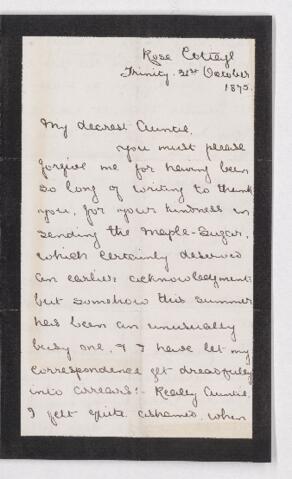 Rose Cottage
Trinity. 21st October
1875.
My dearest Auntie,
You must please
forgive me for having been
so long of writing to thank
you, for your kindness in
sending the Maple-Sugar,
which certainly deserved
an earlier acknowledgment
but somehow this summer
has been an unusually
busy one, & I have let my
correspondence get dreadfully
into arrears:- Really Auntie,
I felt quite ashamed, when